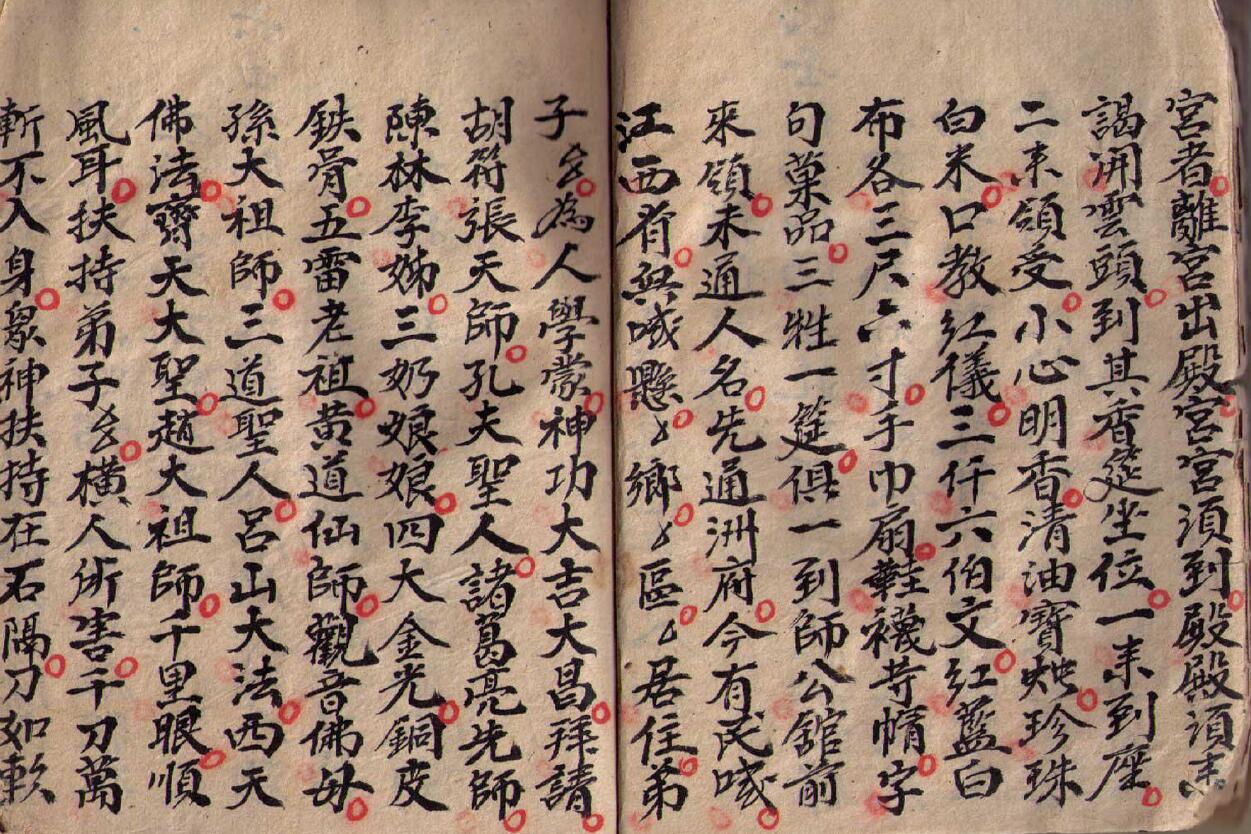 宮者離宮出殿宮宮須到殿殿須末
謁開雲頭到其香筵坐位一来到座
二来領受小心明香清油寶燭珍珠
白米口教紅儀三仟六伯文紅藍白
布各三尺六寸手巾扇鞋襪等幅字
句菓品三牲一筵俱一到師公館前
來領未通人名先通洲府今有民國
江西省興國縣〻鄉〻區〻居住弟
子厶為人學蒙神功大吉大昌拜請
胡符張天師孔夫聖人諸葛亮先師
陳林李姊三奶娘娘四大金光銅皮
鉄骨五雷老祖黃道仙師觀音佛母
孫大祖師三道聖人呂山大法西天
佛法齊天大聖趙大祖師千里眼順
風耳扶持弟子厶橫人術害千刀萬
斬不入身眾神扶持在石隔刀如軟